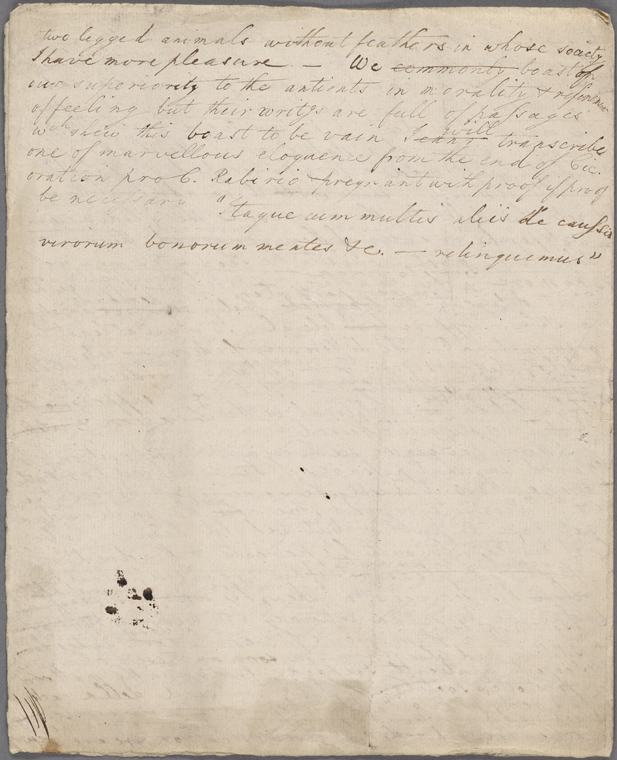 two legged animals without feathers in whose society
I have more pleasure — We commonly boast of
our superiority to the antients in morality & refineme
of feeling but their writgs are full of passages
wch shew this boast to be vain I cant will transcribe
one of marvellous eloquence from the end of Cic:
oration pro C. Rabirio pregnant with proof if proof
be necessary "Itaque cum multis aliis de caussis
virorum bonorum mentes &c. — relinquemus"